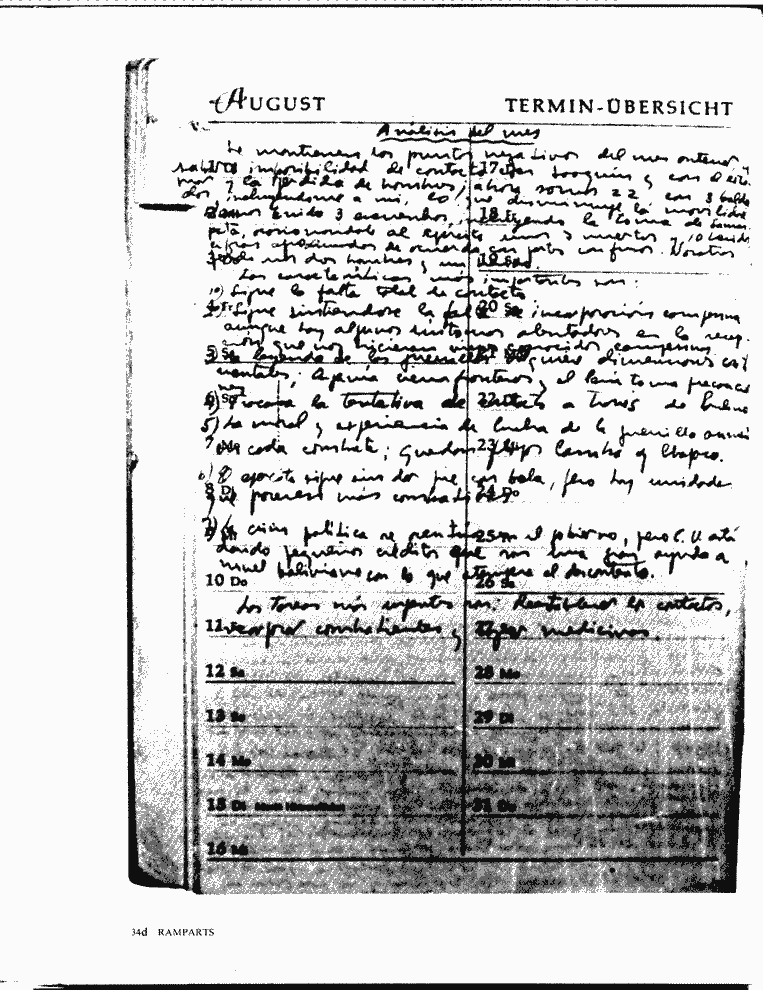 AUGUST TERMIN-ÜBERSICHT
Análisis del mes
Se mantienen los puntos negativos del mes anterior, a
saber: imposibilidad de contacto con Joaquín y con el exte-
rior y la pérdida de hombres; ahora somos 22, con 3 balda
dos, incluyéndome a mí, lo que disminuye la movilidad
Hemos tenido 3 encuentros, incluyendo la toma de Samai
pata, ocasionándole al ejército unos 7 muertos y 10 heridos
cifras aproximadas de acuerdo con partes confusos. Nosotros
perdimos dos hombres y un herido.
Las características más importantes son:
1o) Sigue la falta total de contacto
2o) Sigue sintiéndose la falta de incorporación campesina
aunque hay algunos síntomas alentadores en la recep-
ción que nos hicieron viejos conocidos campesinos
3) La leyenda de las guerrillas adquiere dimensiones conti
nentales; Onganía cierra fronteras y el Perú toma precaucio
nes
4) Fracasó la tentativa de contacto a través de Paulino
5) La moral y experiencia de lucha de la guerrilla aumenta
en cada combate; quedan flojos Camba y Chapaco.
6) El ejército sigue sin dar pie con bola, pero hay unidades
que parecen más combativas
7) La crisis política se acentúa en el gobierno, pero E. U. está
dando pequeños créditos que son una gran ayuda a
nivel boliviano con lo que atempera el descontento.
Las tareas más urgentes son: Reestablecer los contactos,
incorporar combatientes y coger medicinas.
10 Do
11
12 Sa
28 Mo
13 So
29 Di
14 Mo
30 Mi
15 Di
31 Do
16 Mi
34d RAMPARTS